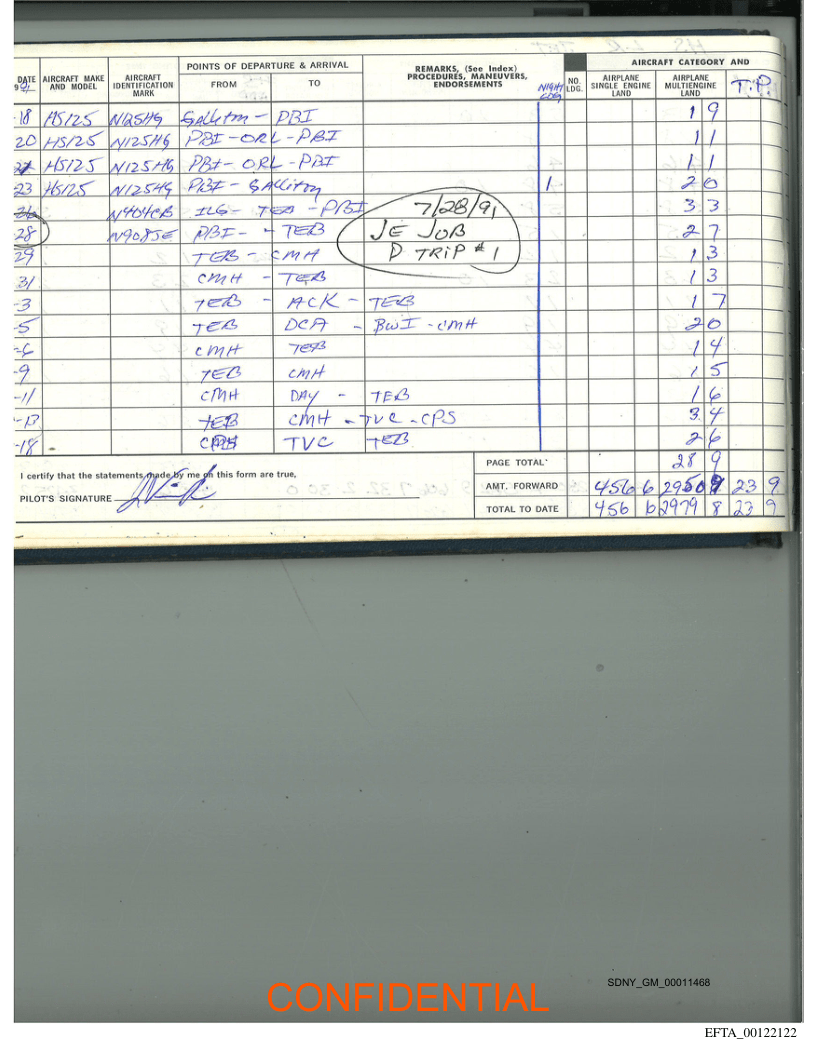 AIRCRAFT CATEGORY AND
POINTS OF DEPARTURE & ARRIVAL
DATE AIRCRAFT MAKE AND MODEL AIRCRAFT IDENTIFICATION MARK FROM TO REMARKS, (See Index) PROCEDURES, MANEUVERS, ENDORSEMENTS NIGHT LDG NO. LDG. AIRPLANE SINGLE ENGINE LAND AIRPLANE MULTIENGINE LAND T.P.
-18 HS125 N125HG Gallitin - PBI 1 9
20 HS125 N125HG PBI - ORL - PBI 1 1
HS125 N125HG PBI - ORL - PBI 1 1
23 HS125 N125HG PBI - Gallitin 1 2 0
26 N404CB ILG - TEB - PBI 7/28/91 3 3
28 N908JE PBI - - TEB JE JOB 2 7
29 TEB - CMH P TRIP #1 1 3
31 CMH - TEB 1 3
-3 TEB - ACK - TEB 1 7
-5 TEB DCA - BWI - CMH 2 0
-6 CMH TEB 1 4
-9 TEB CMH 1 5
-11 CMH DAY - TEB 1 6
-13 TEB CMH - TVC - CPS 3 4
-18 - CPS TVC TEB 2 6
PAGE TOTAL 28 9
I certify that the statements made by me on this form are true,
AMT. FORWARD 456 6 2950 9 23 9
PILOT'S SIGNATURE
TOTAL TO DATE 456 6 2979 8 23 9
SDNY_GM_00011468
CONFIDENTIAL
EFTA_00122122